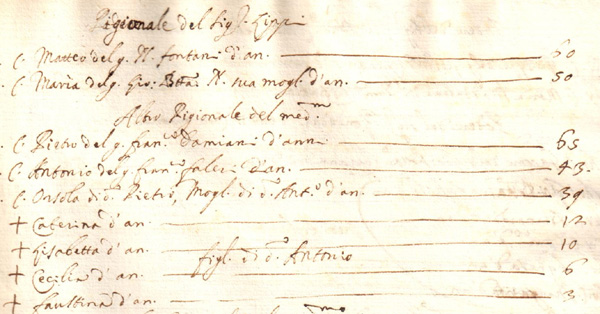 Pigionale del Sig.r
C. Matteo del q. N. fontani d'an. 60
C. Maria del q. Gio: Btta: N. sua mogl. d'an. 50
Altro Pigionale del med.mo
C. Pietro del q. fran.co Damiani d'anni 65
C. Antonio del q. fran.co falcii d'an. 43.
C. Orsola di d.o Pietro, Mogl. di d.o Ant.o d'an. 39
+ Caterina d'an. 12
+ Lisabetta d'an. 10
figl. di d.o Antonio
+ Cecilia d'an. 6
+ faustina d'an. 3